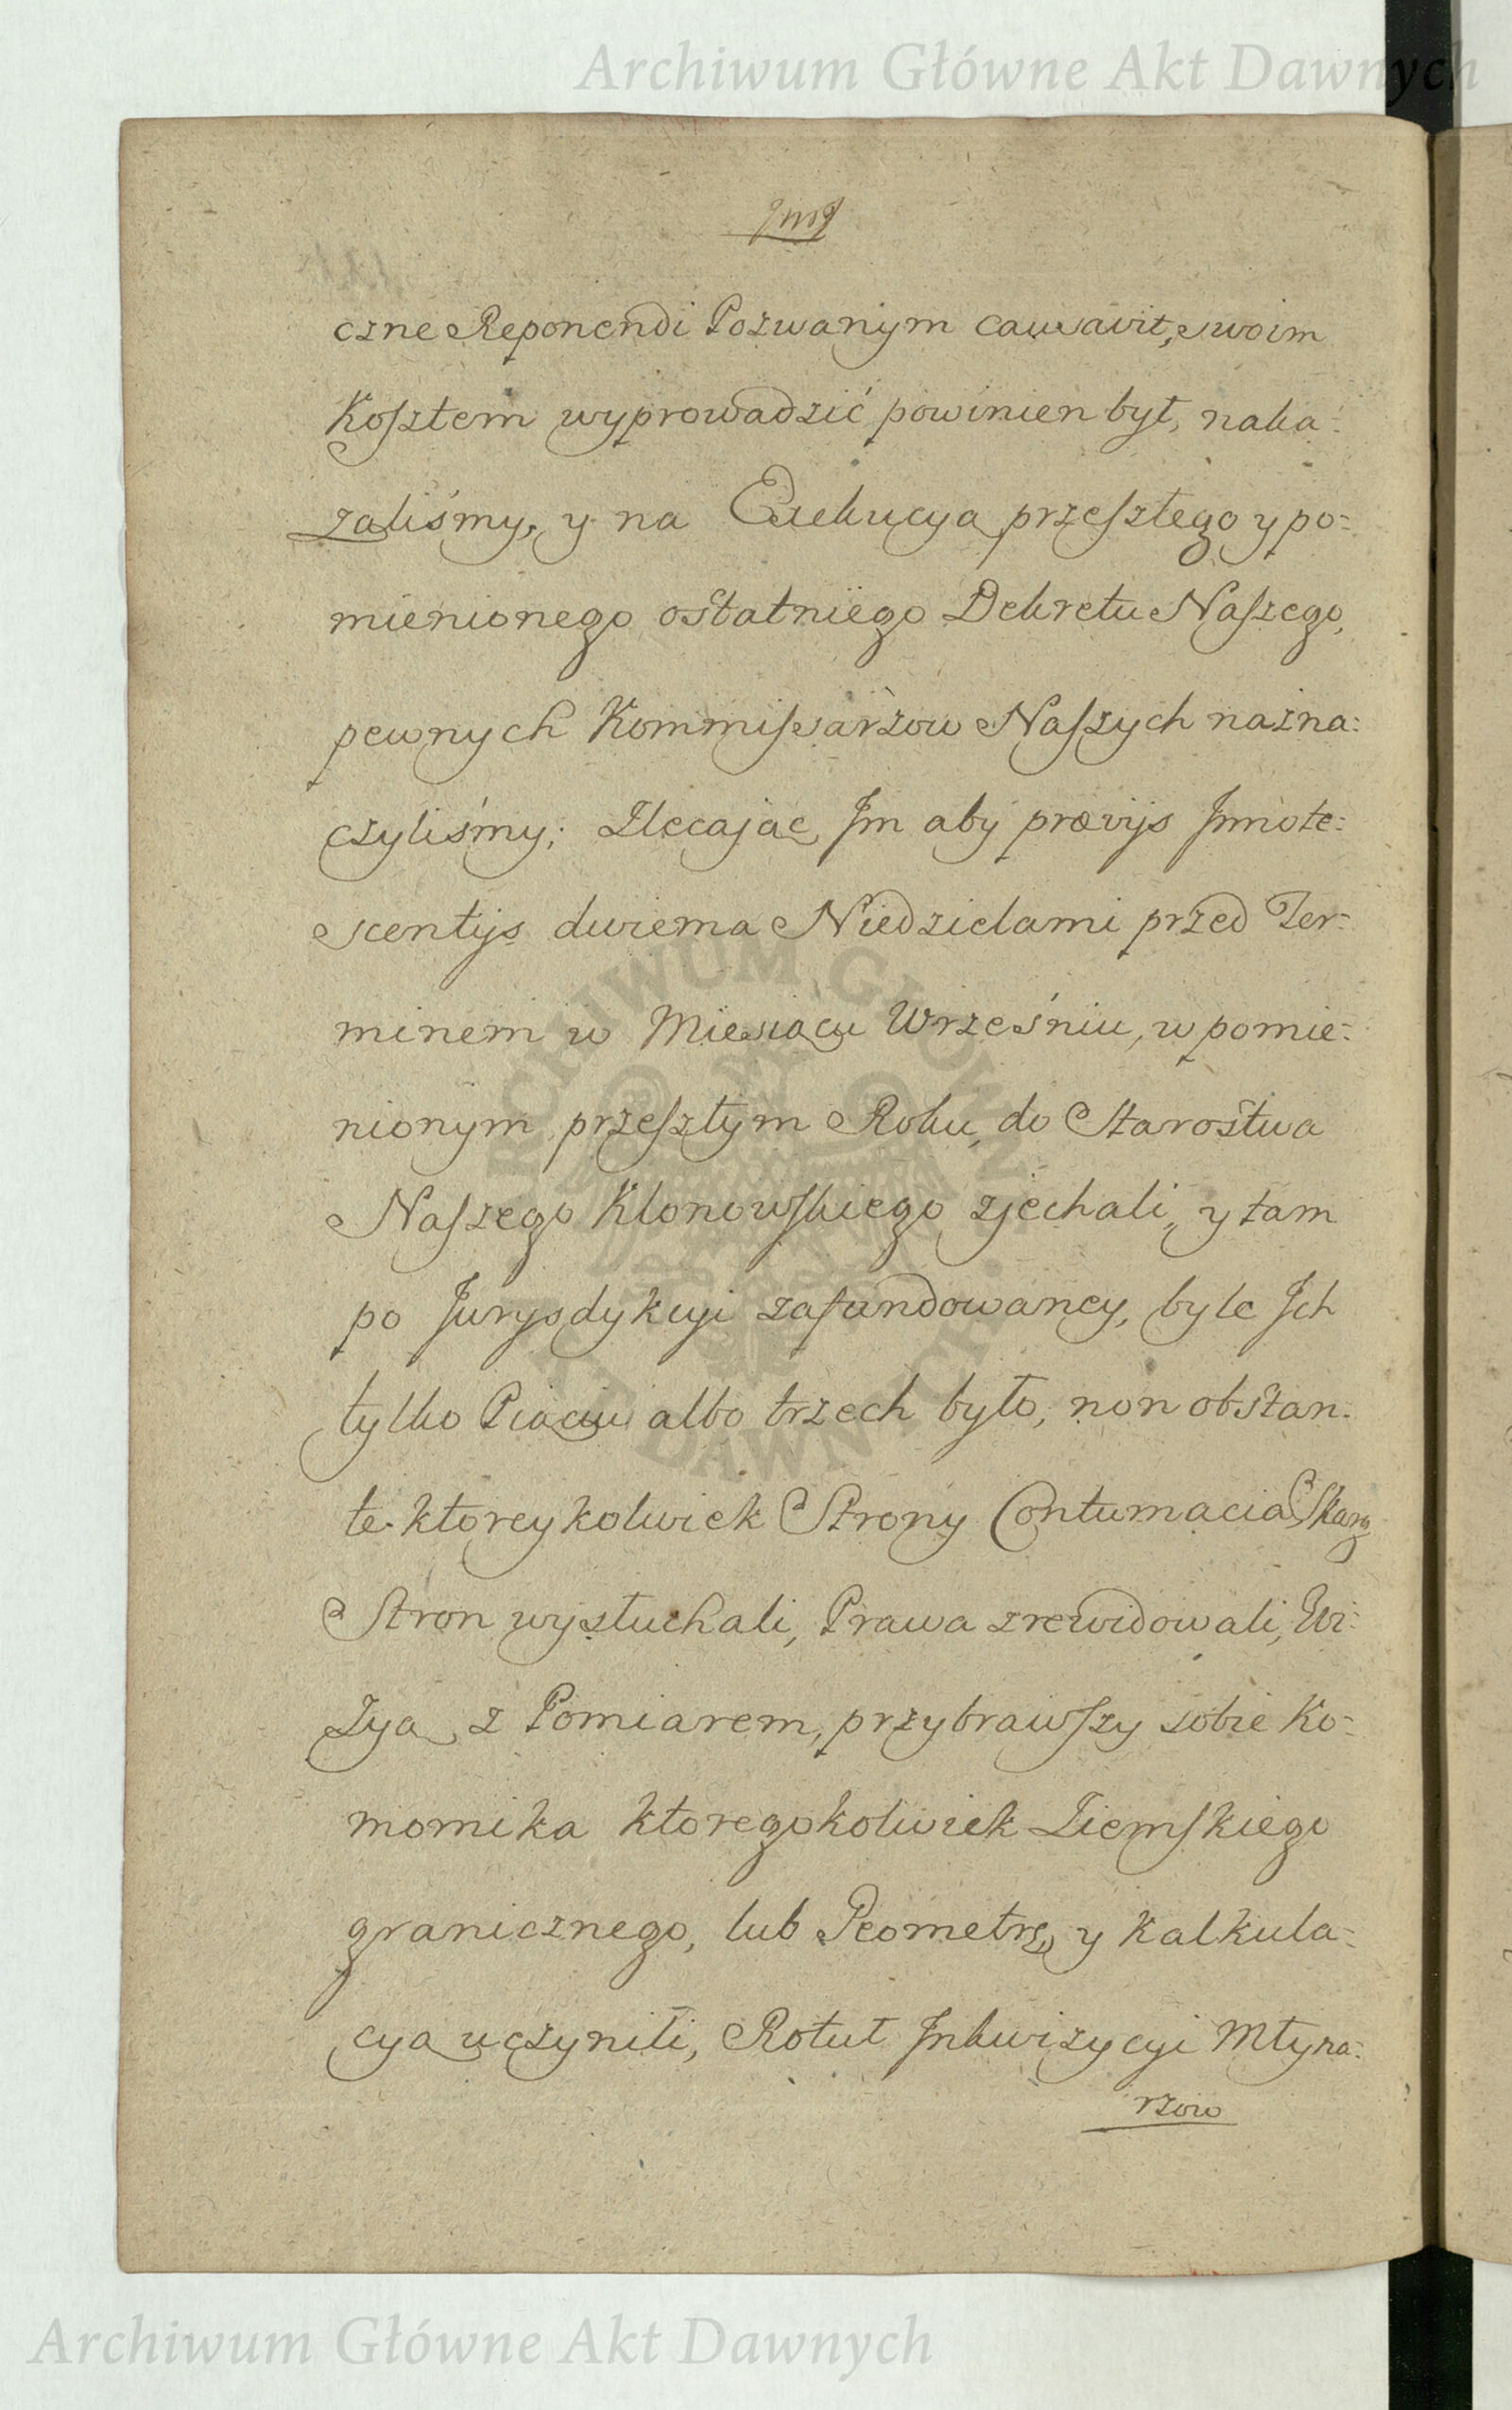 Archiwum Główne Akt Dawnych
czne Reponendi Pozwanym causavit, swoim
Kosztem wyprowadzić powinien był, naka:
zaliśmy, y na Exekucyą przeszłego y po=
mienionego ostatniego Dekretu Naszego,
pewnych Kommissarzow Naszych nazna:
czyliśmy; Zlecaiąc Im aby prævijs Innote:
scentijs dwiema Niedzielami przed Ter:
minem w Miesiącu Wrześniu, w pomie:
nionym przeszłym Roku, do Starostwa
Naszego Klonowskiego zjechali, y tam
po Jurysdykcyi zafundowaney, byle Ich
tylko Piąciu albo trzech było, non obstan:
te ktoreykolwiek Strony Contumacia, Skarg
Stron wysłuchali, Prawa zrewidowali, Wi:
zyą z Pomiarem, przybrawszy sobie Ko:
mornika ktoregokolwiek Ziemskiego
granicznego, lub Jeometrę, y kalkula:
cyą uczynili, Rotuł Inkwizycyi Młyna:
rzow
ARCHIWUM GŁÓWNE
AKT DAWNYCH
Archiwum Główne Akt Dawnych